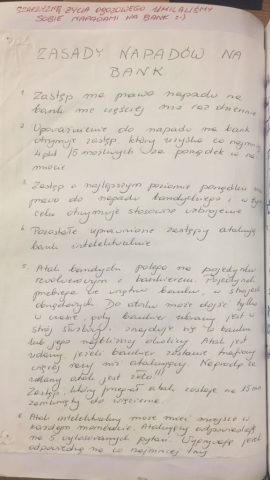 SZARZYZNĘ ŻYCIA OBOZOWEGO UMILALIŚMY
SOBIE NAPADAMI NA BANK :-)
ZASADY NAPADÓW NA
BANK
1. Zastęp ma prawo napadu na
bank nie częściej niż raz dziennie
2. Upoważnienie do napadu na bank
otrzymuje zastęp, który uzyska co najmniej
4 pkt /5 możliwych za porządek w na-
miocie
3. Zastęp o najlepszym poziomie porządku ma
prawo do napadu bandyckiego i w tym
celu otrzymuje stosowne uzbrojenie
4. Pozostałe uprawnione zastępy atakują
bank intelektualnie
5. Atak bandycki polega na pojedynku
rewolwerowym z bankierem. Pojedynek
przebiega we wnętrzu banku, w strojach
Do ataku może dojść tylko
w czasie, gdy bankier ubrany jest w
strój służbowy, znajduje się w banku
lub jego najbliższej okolicy. Atak jest
udany, jeżeli bankier zostanie trafiony
więcej razy niż atakujący. Nagrodą za
udany atak jest złoto!!!
Zastęp, który przegrał atak, zostaje na 15 min
zamknięty do więzienia.
6. Atak intelektualny może mieć miejsce w
każdym momencie. Atakujący odpowiadają
na 5 wylosowanych pytań. Wygrywają jeśli
odpowiedzą na co najmniej trzy